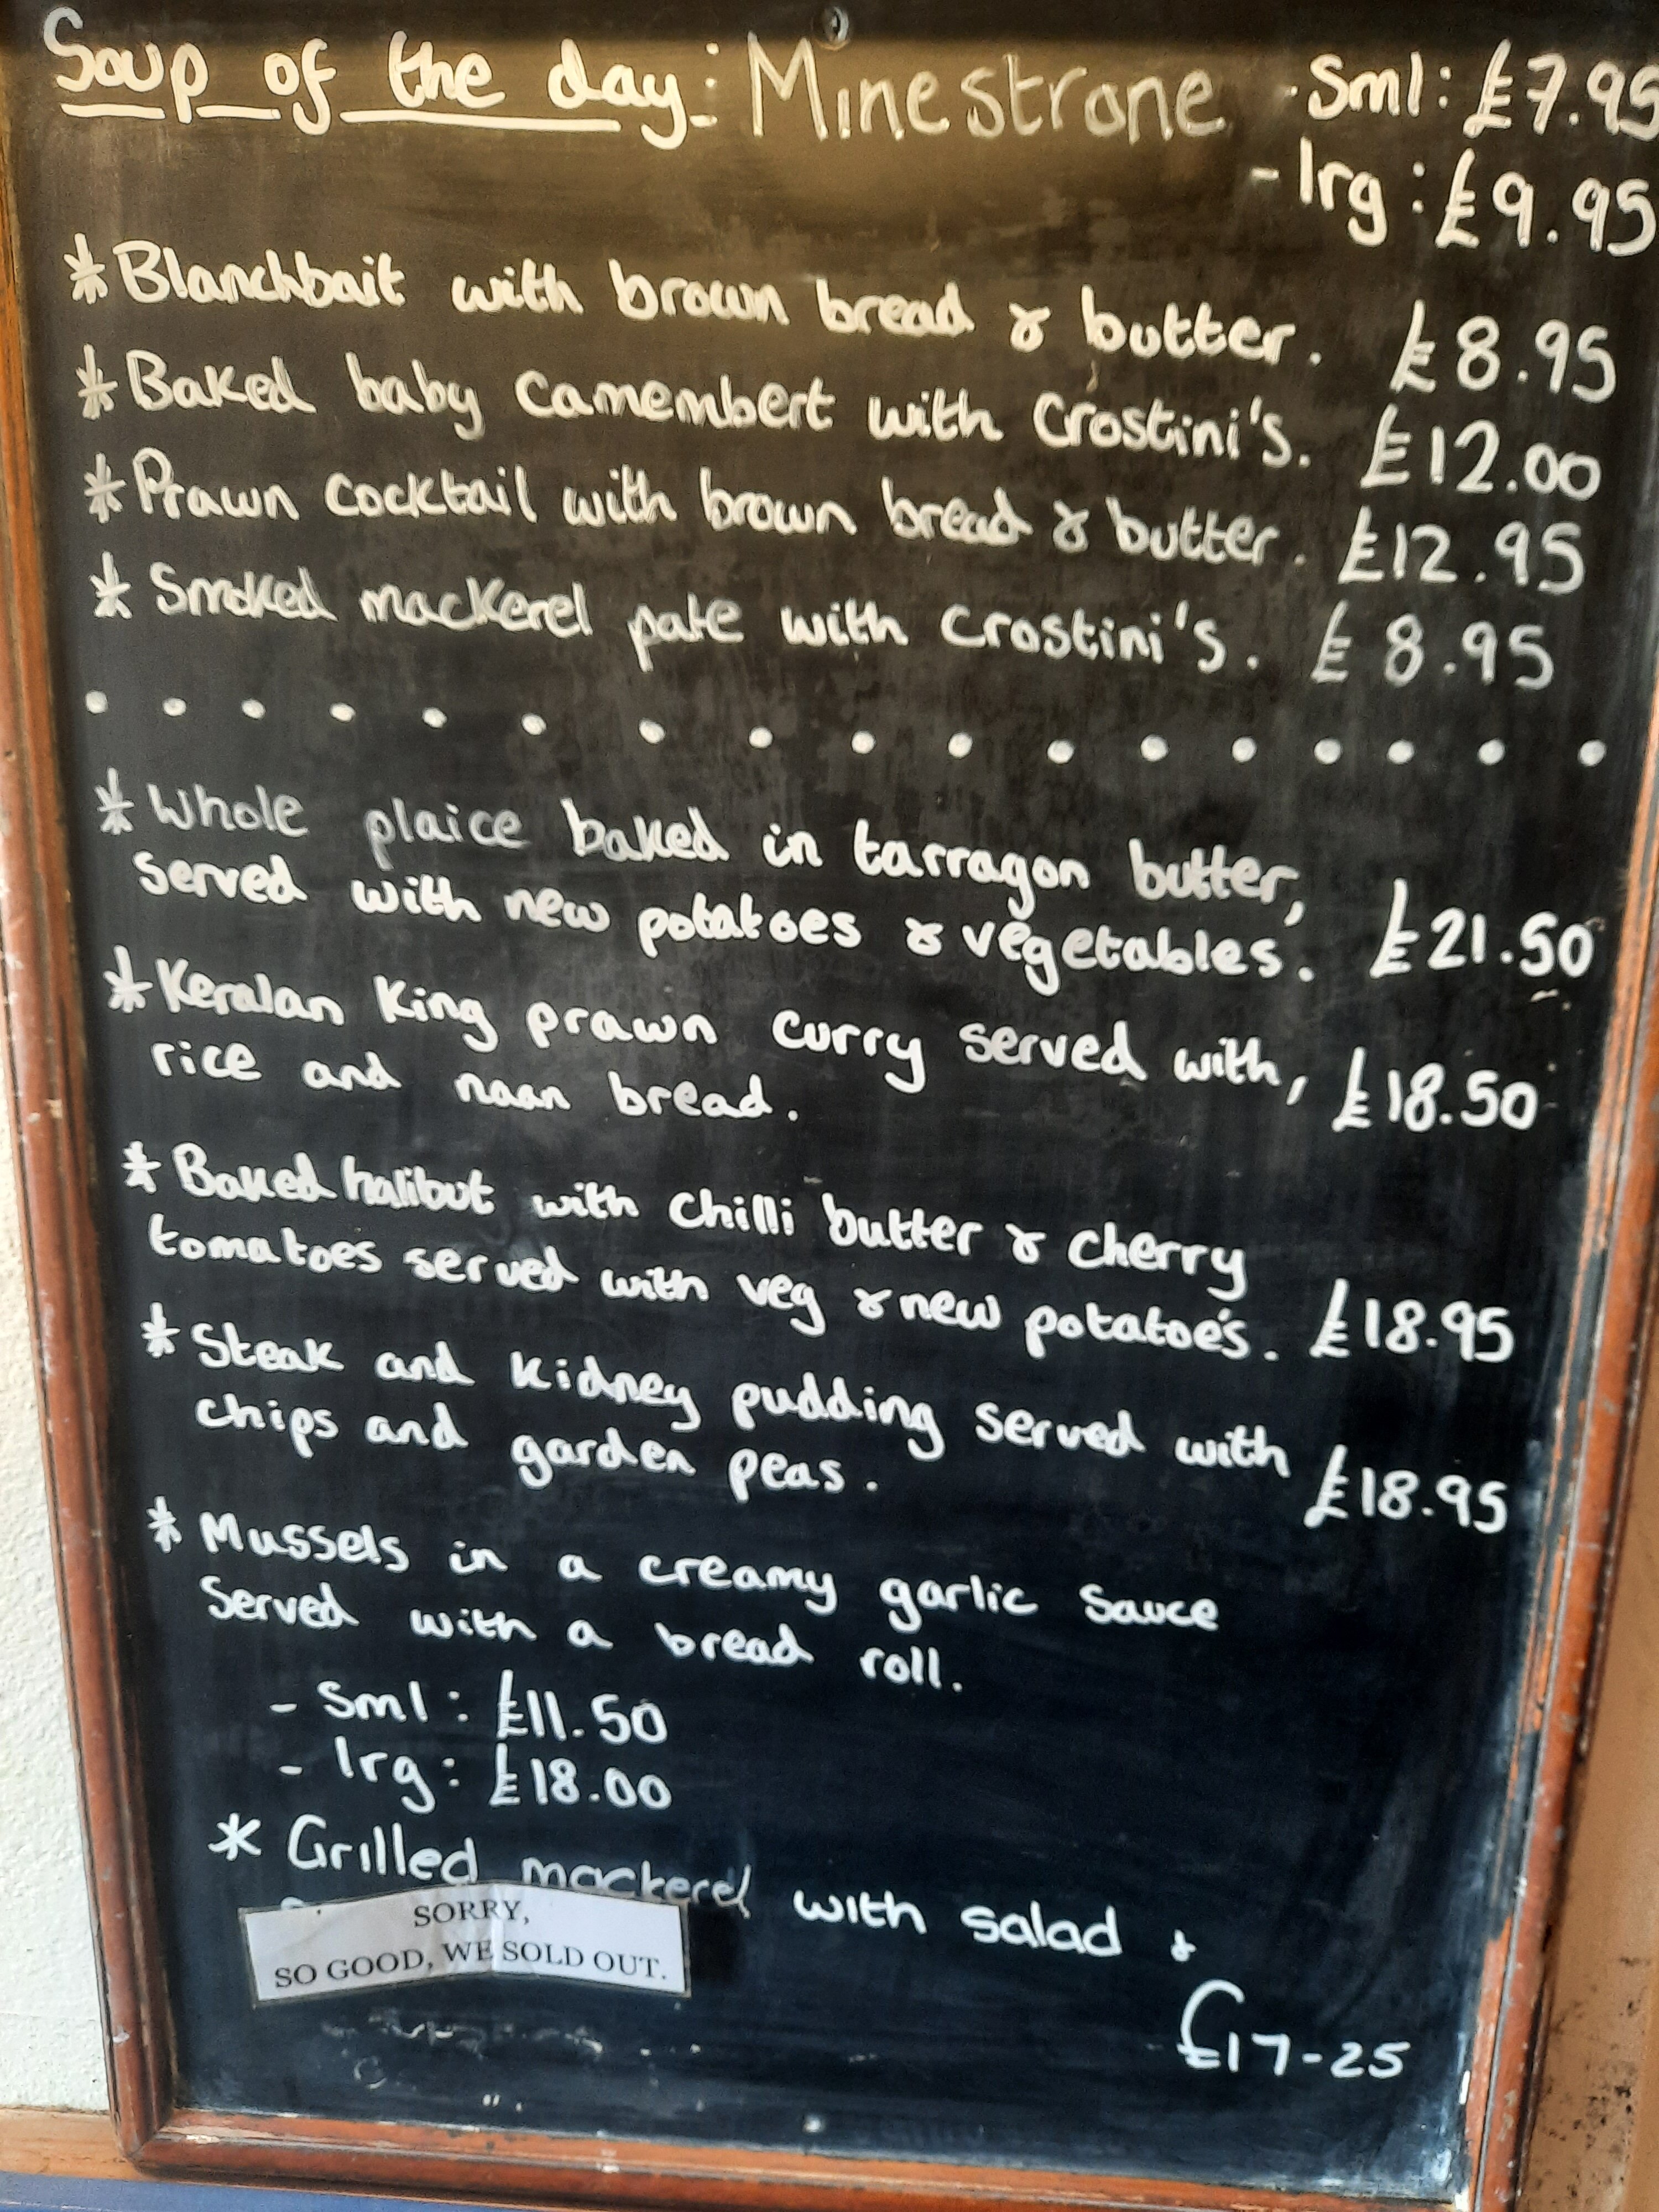 Soup of the day: Minestrone - Sml: £7.95
- lrg: £9.95
* Blanchbait with brown bread & butter. £8.95
* Baked baby camembert with Crostini's. £12.00
* Prawn cocktail with brown bread & butter. £12.95
* Smoked mackerel pate with Crostini's. £8.95
* Whole plaice baked in tarragon butter,
served with new potatoes & vegetables. £21.50
* Keralan King prawn curry served with, £18.50
rice and naan bread.
* Baked halibut with chilli butter & cherry
tomatoes served with veg & new potatoe's. £18.95
* Steak and kidney pudding served with
chips and garden peas. £18.95
* Mussels in a creamy garlic sauce
Served with a bread roll.
- Sml: £11.50
- lrg: £18.00
* Grilled mackerel with salad &
SORRY,
SO GOOD, WE SOLD OUT.
£17-25